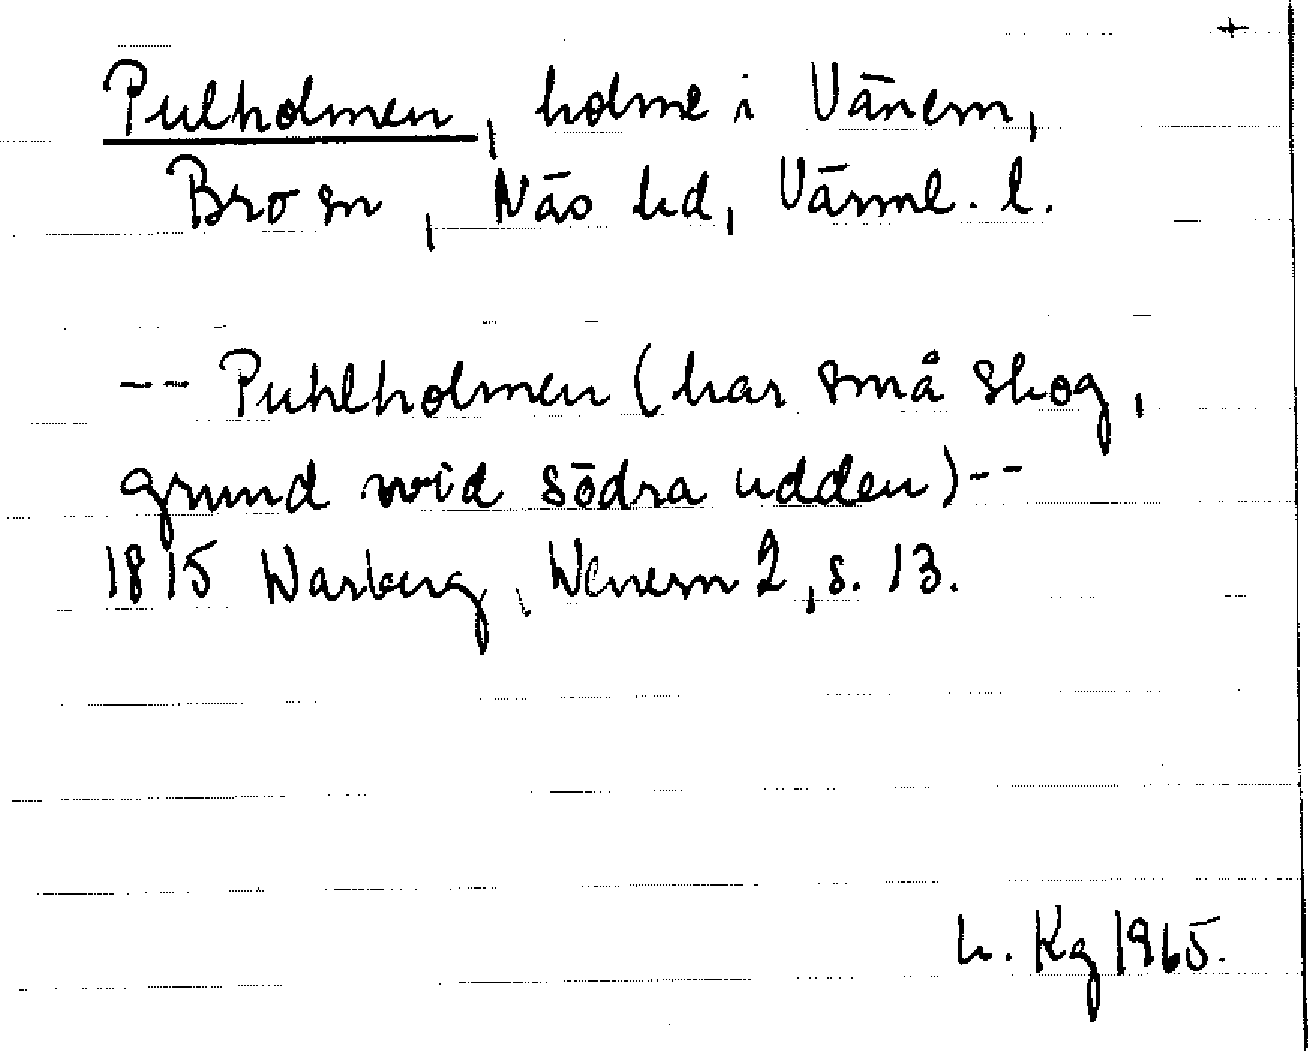 +
Pulholmen, holme i Vänern,
Bro sn, Näs hd, Värml. l.
-- Puhlholmen (har små skog,
grund wid södra udden) --
1815 Warberg, Wenern 2, s. 13.
h. Kg 1965.